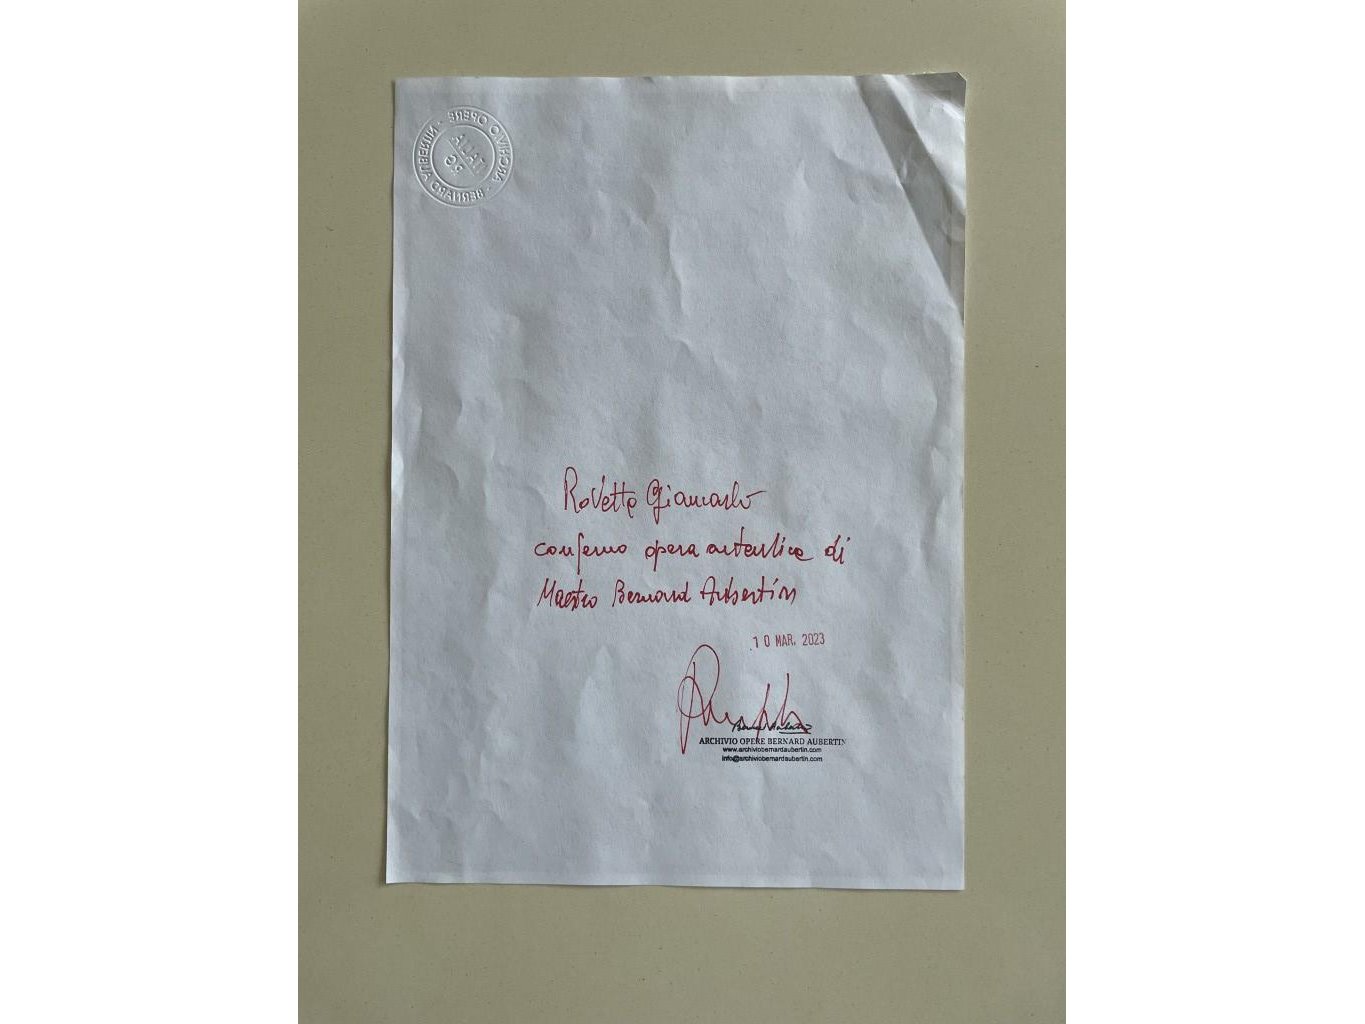 ARCHIVIO OPERE · BERNARD AUBERTIN ·
ITALIA
RG
Rovetta Giancarlo
confermo opera autentica di
Maestro Bernard Aubertin
10 MAR. 2023
Bernard Aubertin
ARCHIVIO OPERE BERNARD AUBERTIN
www.archiviobernardaubertin.com
info@archiviobernardaubertin.com